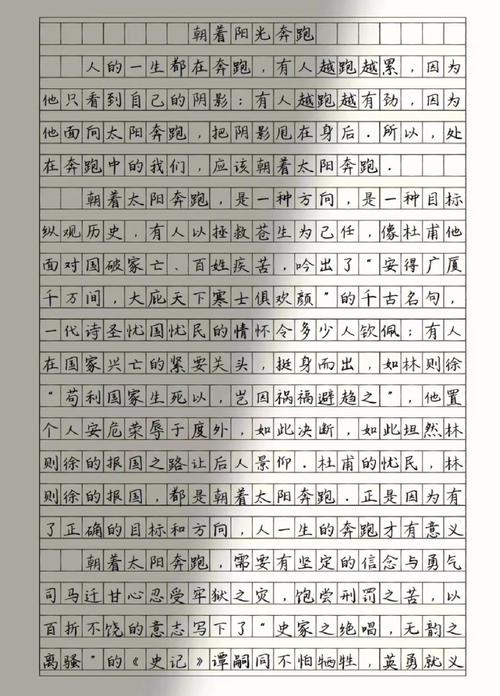 朝着阳光奔跑
人的一生都在奔跑，有人越跑越累，因为
他只看到自己的阴影；有人越跑越有劲，因为
他面向太阳奔跑，把阴影甩在身后．所以，处
在奔跑中的我们，应该朝着太阳奔跑．
朝着太阳奔跑，是一种方向，是一种目标
纵观历史，有人以拯救苍生为己任，像杜甫他
面对国破家亡、百姓疾苦，吟出了“安得广厦
千万间，大庇天下寒士俱欢颜”的千古名句，
一代诗圣忧国忧民的情怀令多少人钦佩；有人
在国家兴亡的紧要关头，挺身而出，如林则徐
“苟利国家生死以，岂因祸福避趋之”，他置
个人安危荣辱于度外，如此决断，如此坦然林
则徐的报国之路让后人景仰．杜甫的忧民，林
则徐的报国，都是朝着太阳奔跑．正是因为有
了正确的目标和方向，人一生的奔跑才有意义
朝着太阳奔跑，需要有坚定的信念与勇气
司马迁甘心忍受牢狱之灾，饱尝刑罚之苦，以
百折不饶的意志写下了“史家之绝唱，无韵之
离骚”的《史记》谭嗣同不怕牺牲，英勇就义